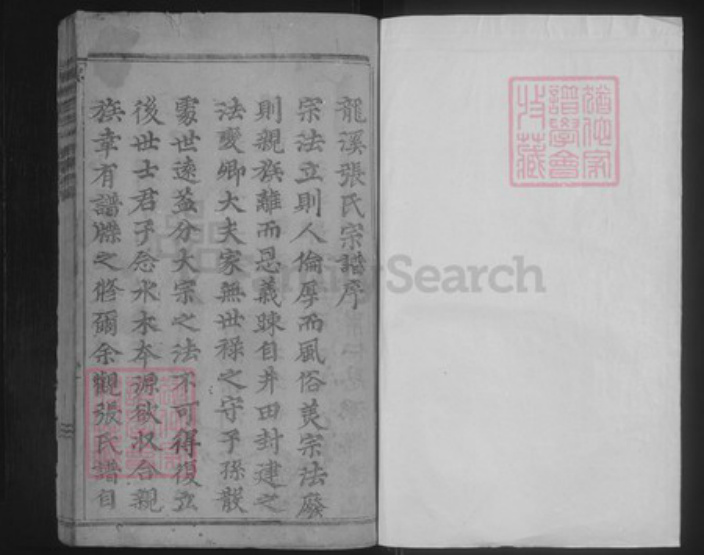 龍溪張氏宗譜序
宗法立則人倫厚而風俗美宗法廢
則親族離而恩義踈自井田封建之
法變卿大夫家無世祿之守子孫散
處世遠益分大宗之法不可得復立
後世士君子念水木本源欲収合親
族幸有譜牒之脩爾余觀張氏譜自
猶他家
譜學會
收藏
FamilySearch